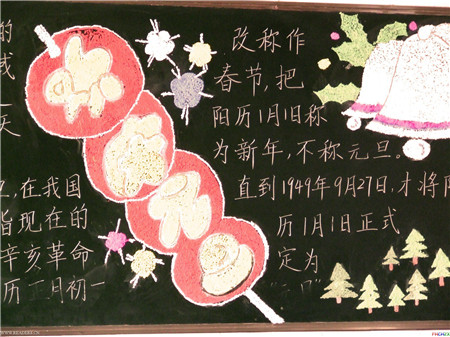 的
天
改称作
春节,把
阳历1月1日称
为新年,不称元旦。
直到1949年9月27日,才将阳
历1月1日正式
定为
,在我国
指现在的
辛亥革命
历 月初一